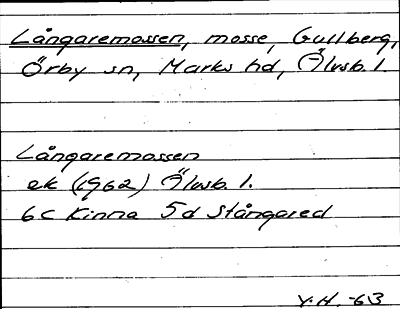 Långaremossen, mosse, Gullberg,
Örby sn, Marks hd, Älvsb. l.
Långaremossen
ek (1962) Älvsb. l.
6c Kinna 5d Stångared
Y.H. -63